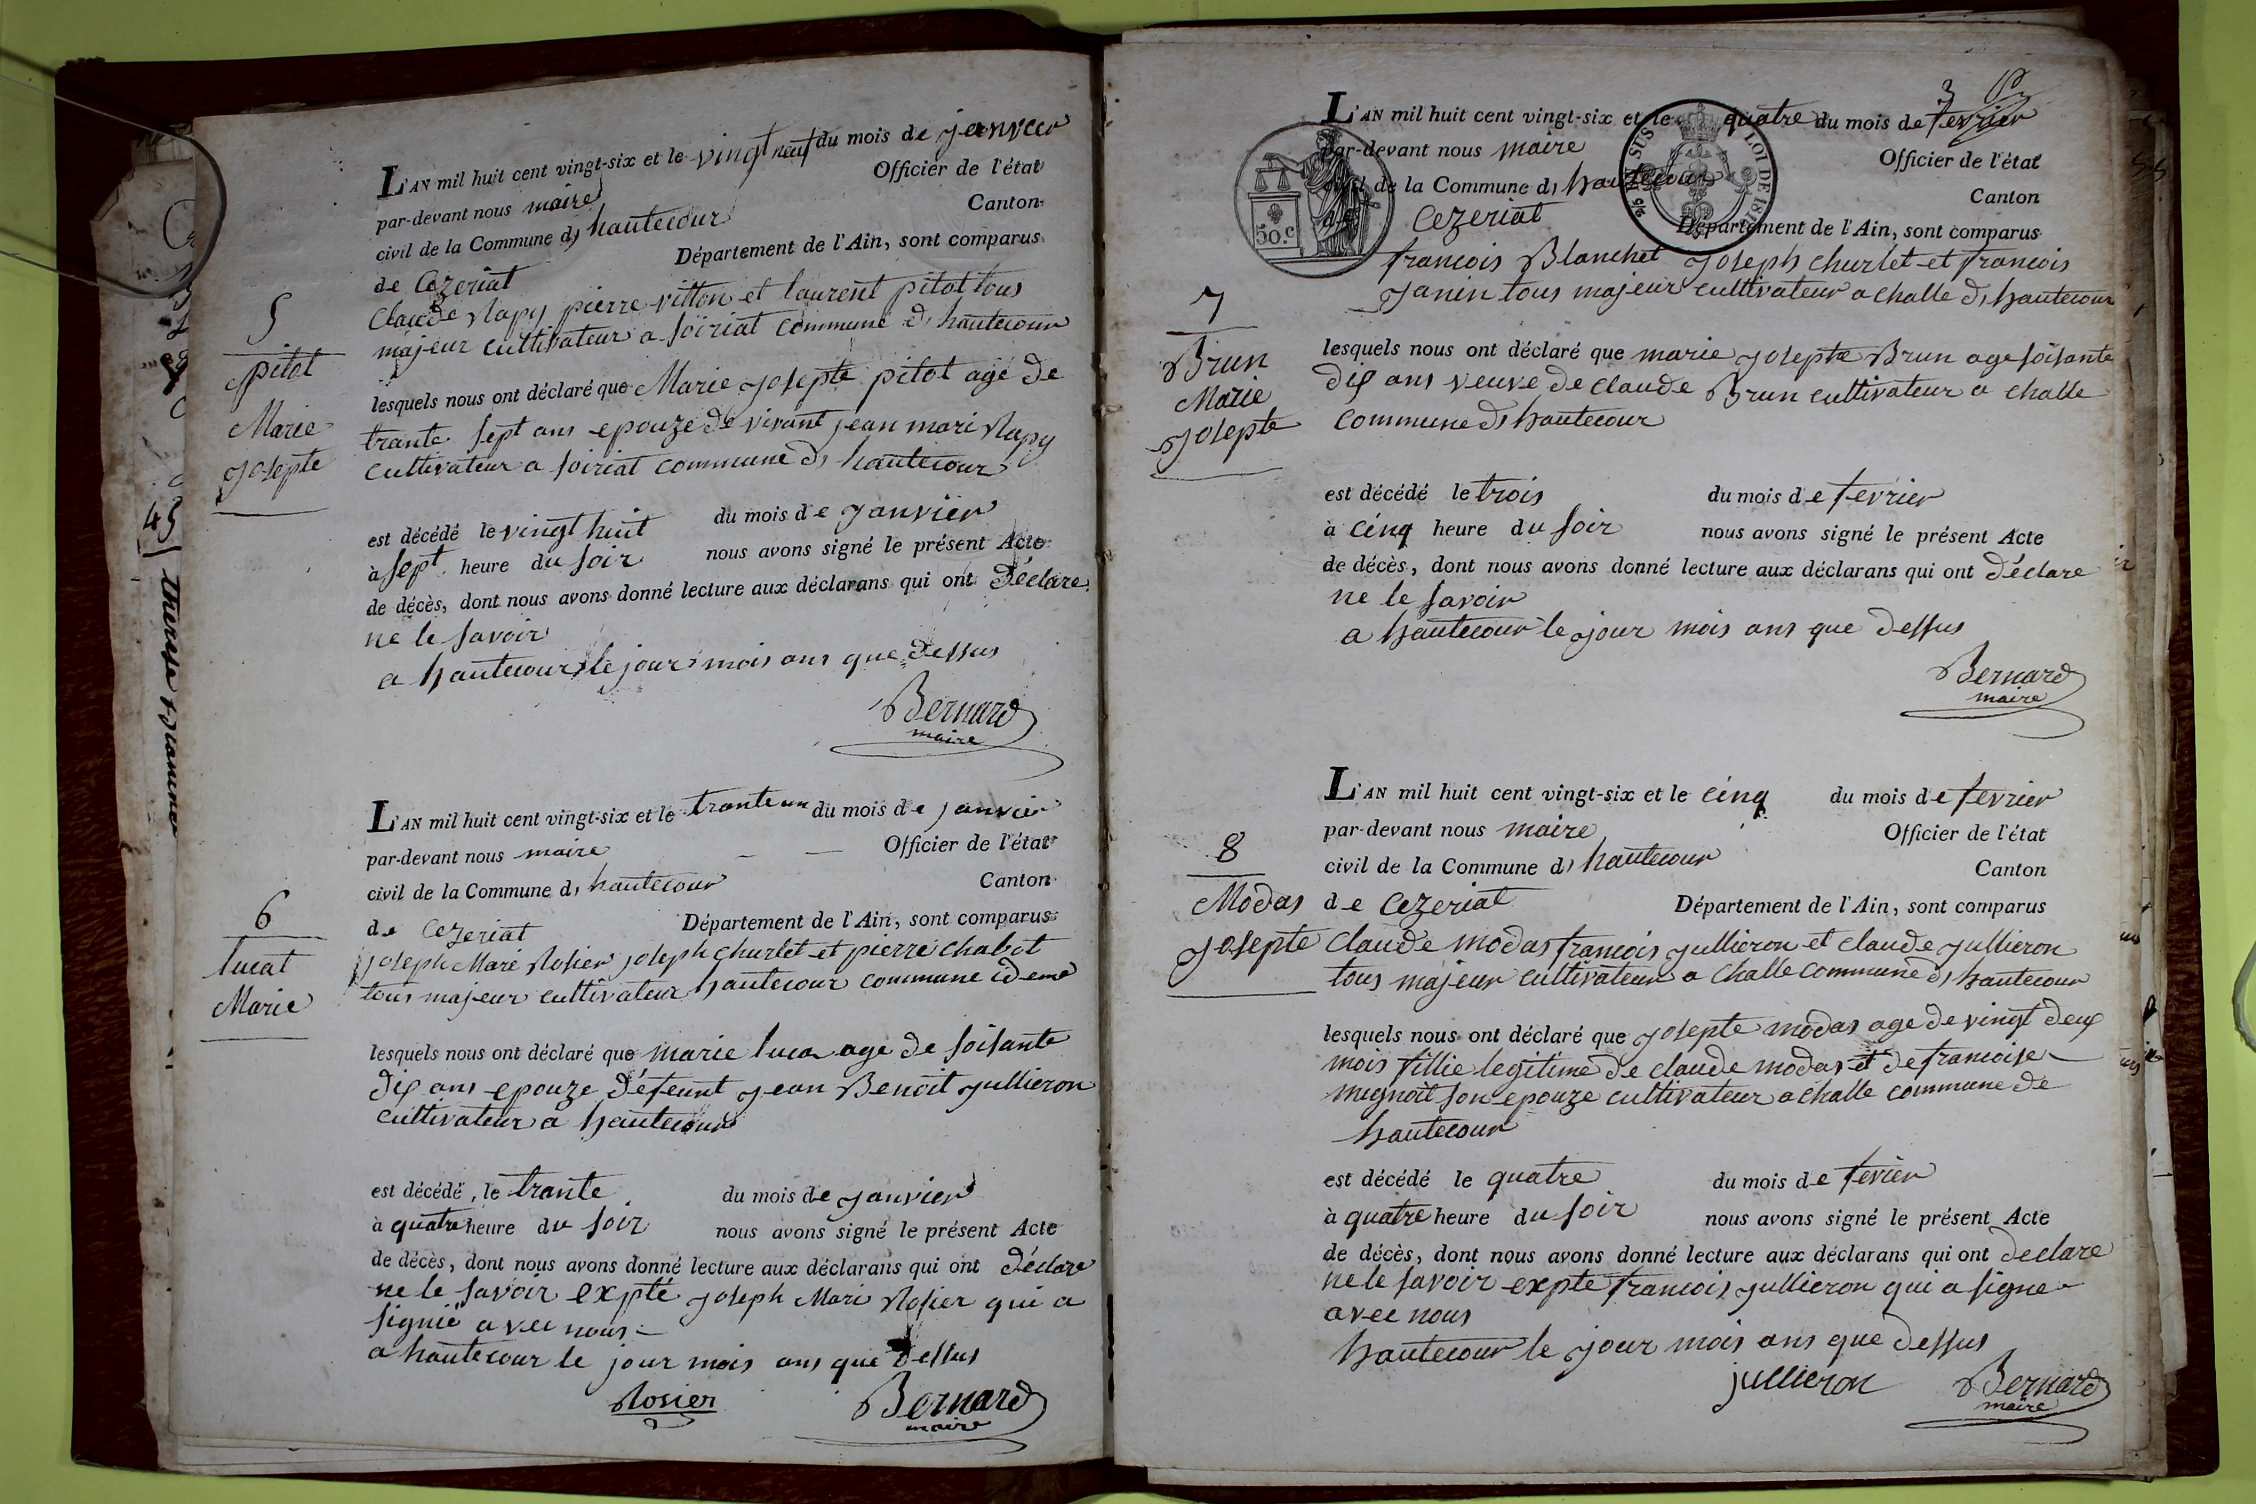 L'AN mil huit cent vingt-six et le vingt neuf du mois de janvier
par-devant nous maire Officier de l'état
civil de la Commune d, hautecour Canton
de Cezeriat Département de l'Ain, sont comparus
Claude Rapy pierre vitton et laurent pitot tous
majeur cultivateur a soiriat commune d, hautecour
5
pitot
Marie
Josepte
lesquels nous ont déclaré que Marie Josepte pitot agé de
trante sept ans epouze de vivant jean mari Rapy
cultivateur a soiriat commune d, hautecour
est décédé le vingt huit du mois de Janvier
à sept heure du soir nous avons signé le présent Acte
de décès, dont nous avons donné lecture aux déclarans qui ont Déclare
ne le savoir
a hautecour le jour mois ans que dessus
Bernard
maire
L'AN mil huit cent vingt-six et le tranteun du mois de janvier
par-devant nous maire Officier de l'état
civil de la Commune d, hautecour Canton
de Cezeriat Département de l'Ain, sont comparus
joseph Mari Rosier joseph churlet et pierre chabot
tous majeur cultivateur hautecour commune ideme
6
lucat
Marie
lesquels nous ont déclaré que marie luca age de soisante
dix ans epouze défeunt Jean Benoit Jullieron
cultivateur a hautecour
est décédé, le trante du mois de Janvier
à quatre heure du soir nous avons signé le présent Acte
de décès, dont nous avons donné lecture aux déclarans qui ont déclare
ne le savoir expté Joseph Mari Rosier qui a
signié avec nous
a hautecour le jour mois ans que dessus
Rosier Bernard
maire
45 therese
3
L'AN mil huit cent vingt-six et le quatre du mois de fevrier
par-devant nous maire Officier de l'état
civil de la Commune d, hautecour Canton
de Cezeriat Département de l'Ain, sont comparus
50.c
SUS LOI DE 1816
francois Blanchet Joseph churlet et francois
Janin tous majeur cultivateur a challe d, hautecour
7
Brun
Marie
Josepte
lesquels nous ont déclaré que marie Josepte Brun age soisante
dix ans veuve de claude Brun cultivateur a challe
commune d, hautecour
est décédé le trois du mois de fevrier
à cinq heure du soir nous avons signé le présent Acte
de décès, dont nous avons donné lecture aux déclarans qui ont déclare
ne le savoir
a hautecour le jour mois ans que dessus
Bernard
maire
L'AN mil huit cent vingt-six et le cinq du mois de fevrier
par-devant nous maire Officier de l'état
civil de la Commune d, hautecour Canton
de Cezeriat Département de l'Ain, sont comparus
8
Modas
Josepte
claude modas francois Jullieron et claude Jullieron
tous majeur cultivateur a challe commune d, hautecour
lesquels nous ont déclaré que Josepte modas age de vingt deux
mois fillie legitime de claude modas et de francoise
mignoit son epouze cultivateur a challe commune de
hautecour
est décédé le quatre du mois de fevier
à quatre heure du soir nous avons signé le présent Acte
de décès, dont nous avons donné lecture aux déclarans qui ont declare
ne le savoir expte francois Jullieron qui a signe
avec nous
hautecour le jour mois ans que dessus
jullieron Bernard
maire